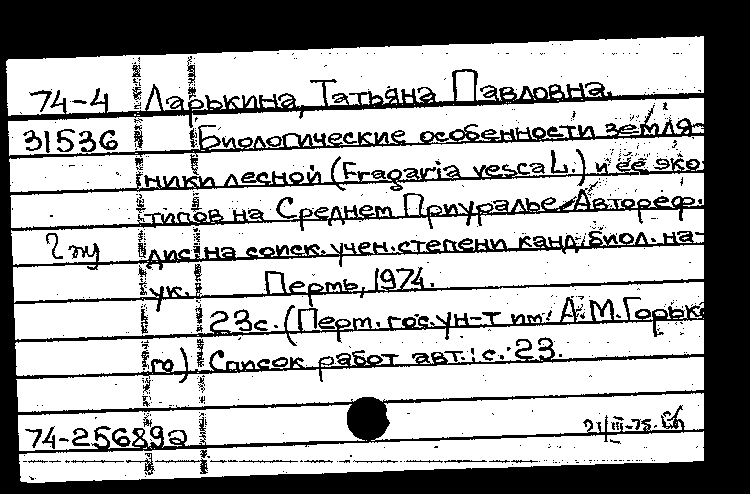 74-4 Ларькина, Татьяна Павловна.
31536 Биологические особенности земля-
ники лесной (Fragaria vesca L.) и ее эко-
типов на Среднем Приуралье. Автореф.
дис. на соиск. учен. степени канд. биол. на-
ук. Пермь, 1974.
23с. (Перм. гос. ун-т им. А.М. Горько
го). Список работ авт.: с. 23.
74-25689а